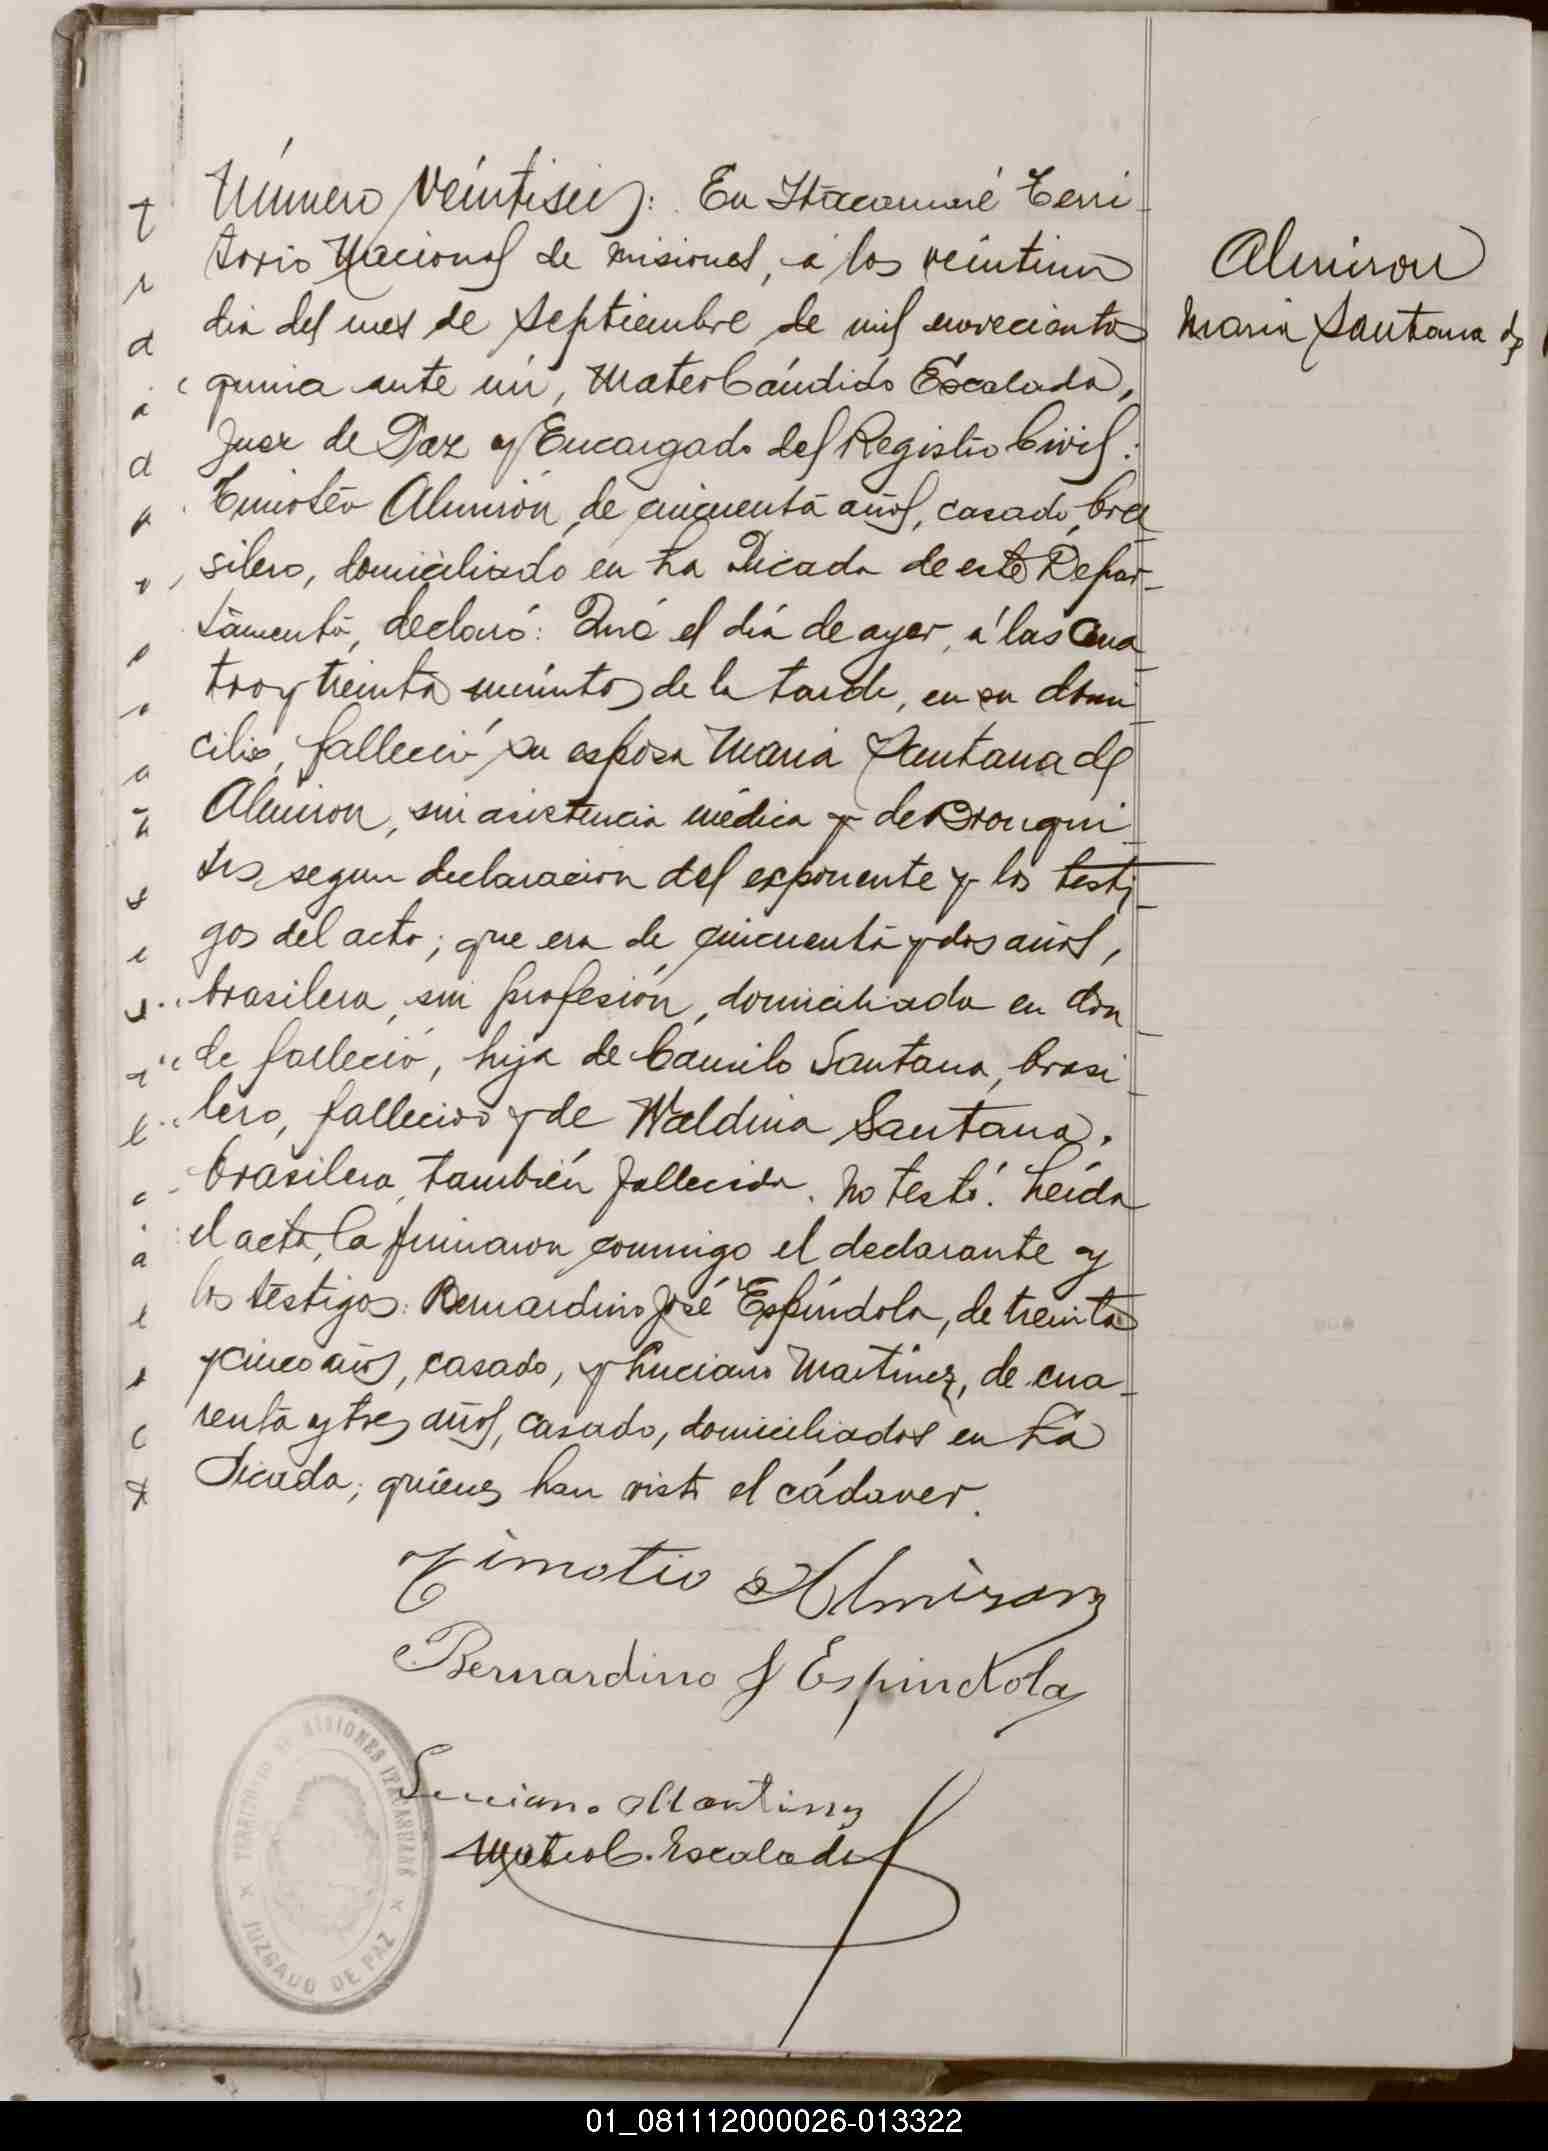 Número Veintiseis: En Itacaruaré Terri-
torio Nacional de misiones, á los veintiun
dia del mes de Septiembre de mil novecientos
ante mi, Mateo Cándido Escalada,
Juez de Paz y Encargado del Registro Civil:
Almirón, de cincuenta años, casado, bra
silero, domiciliado en La Picada de este Depar-
tamento, declaró: Que el dia de ayer, á las cua
tro y treinta minutos de la tarde, en su domi
cilio, falleció su esposa Maria Santana de
Almiron, sin asistencia médica y de Bronqui
tis, segun declaracion del exponente y los testi
gos del acto; que era de cincuenta y dos años,
brasilera, sin profesión, domiciliada en don
de falleció, hija de Camilo Santana, brasi
lero, fallecido y de Waldina Santana,
brasilera, también fallecida. No testó. Leída
el acta, la firmaron conmigo el declarante y
los téstigos: Bernardino José Espíndola, de treinta
y cinco años, casado, y Luciano Martínez, de cua-
renta y tres años, casado, domiciliados en La
Picada; quienes han visto el cádaver.
Timotio Almiron
Bernardino J Espindola
Luciano Martinez
Mateo C. Escalada
TERRITORIO DE MISIONES ITACARUARÉ
JUZGADO DE PAZ
Almiron
Maria Santana de
01_081112000026-013322